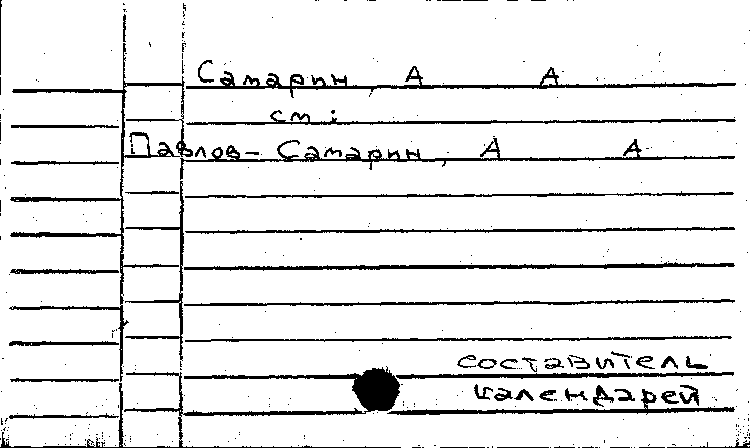 Самарин, А А
см:
Павлов-Самарин, А А
составитель
календарей